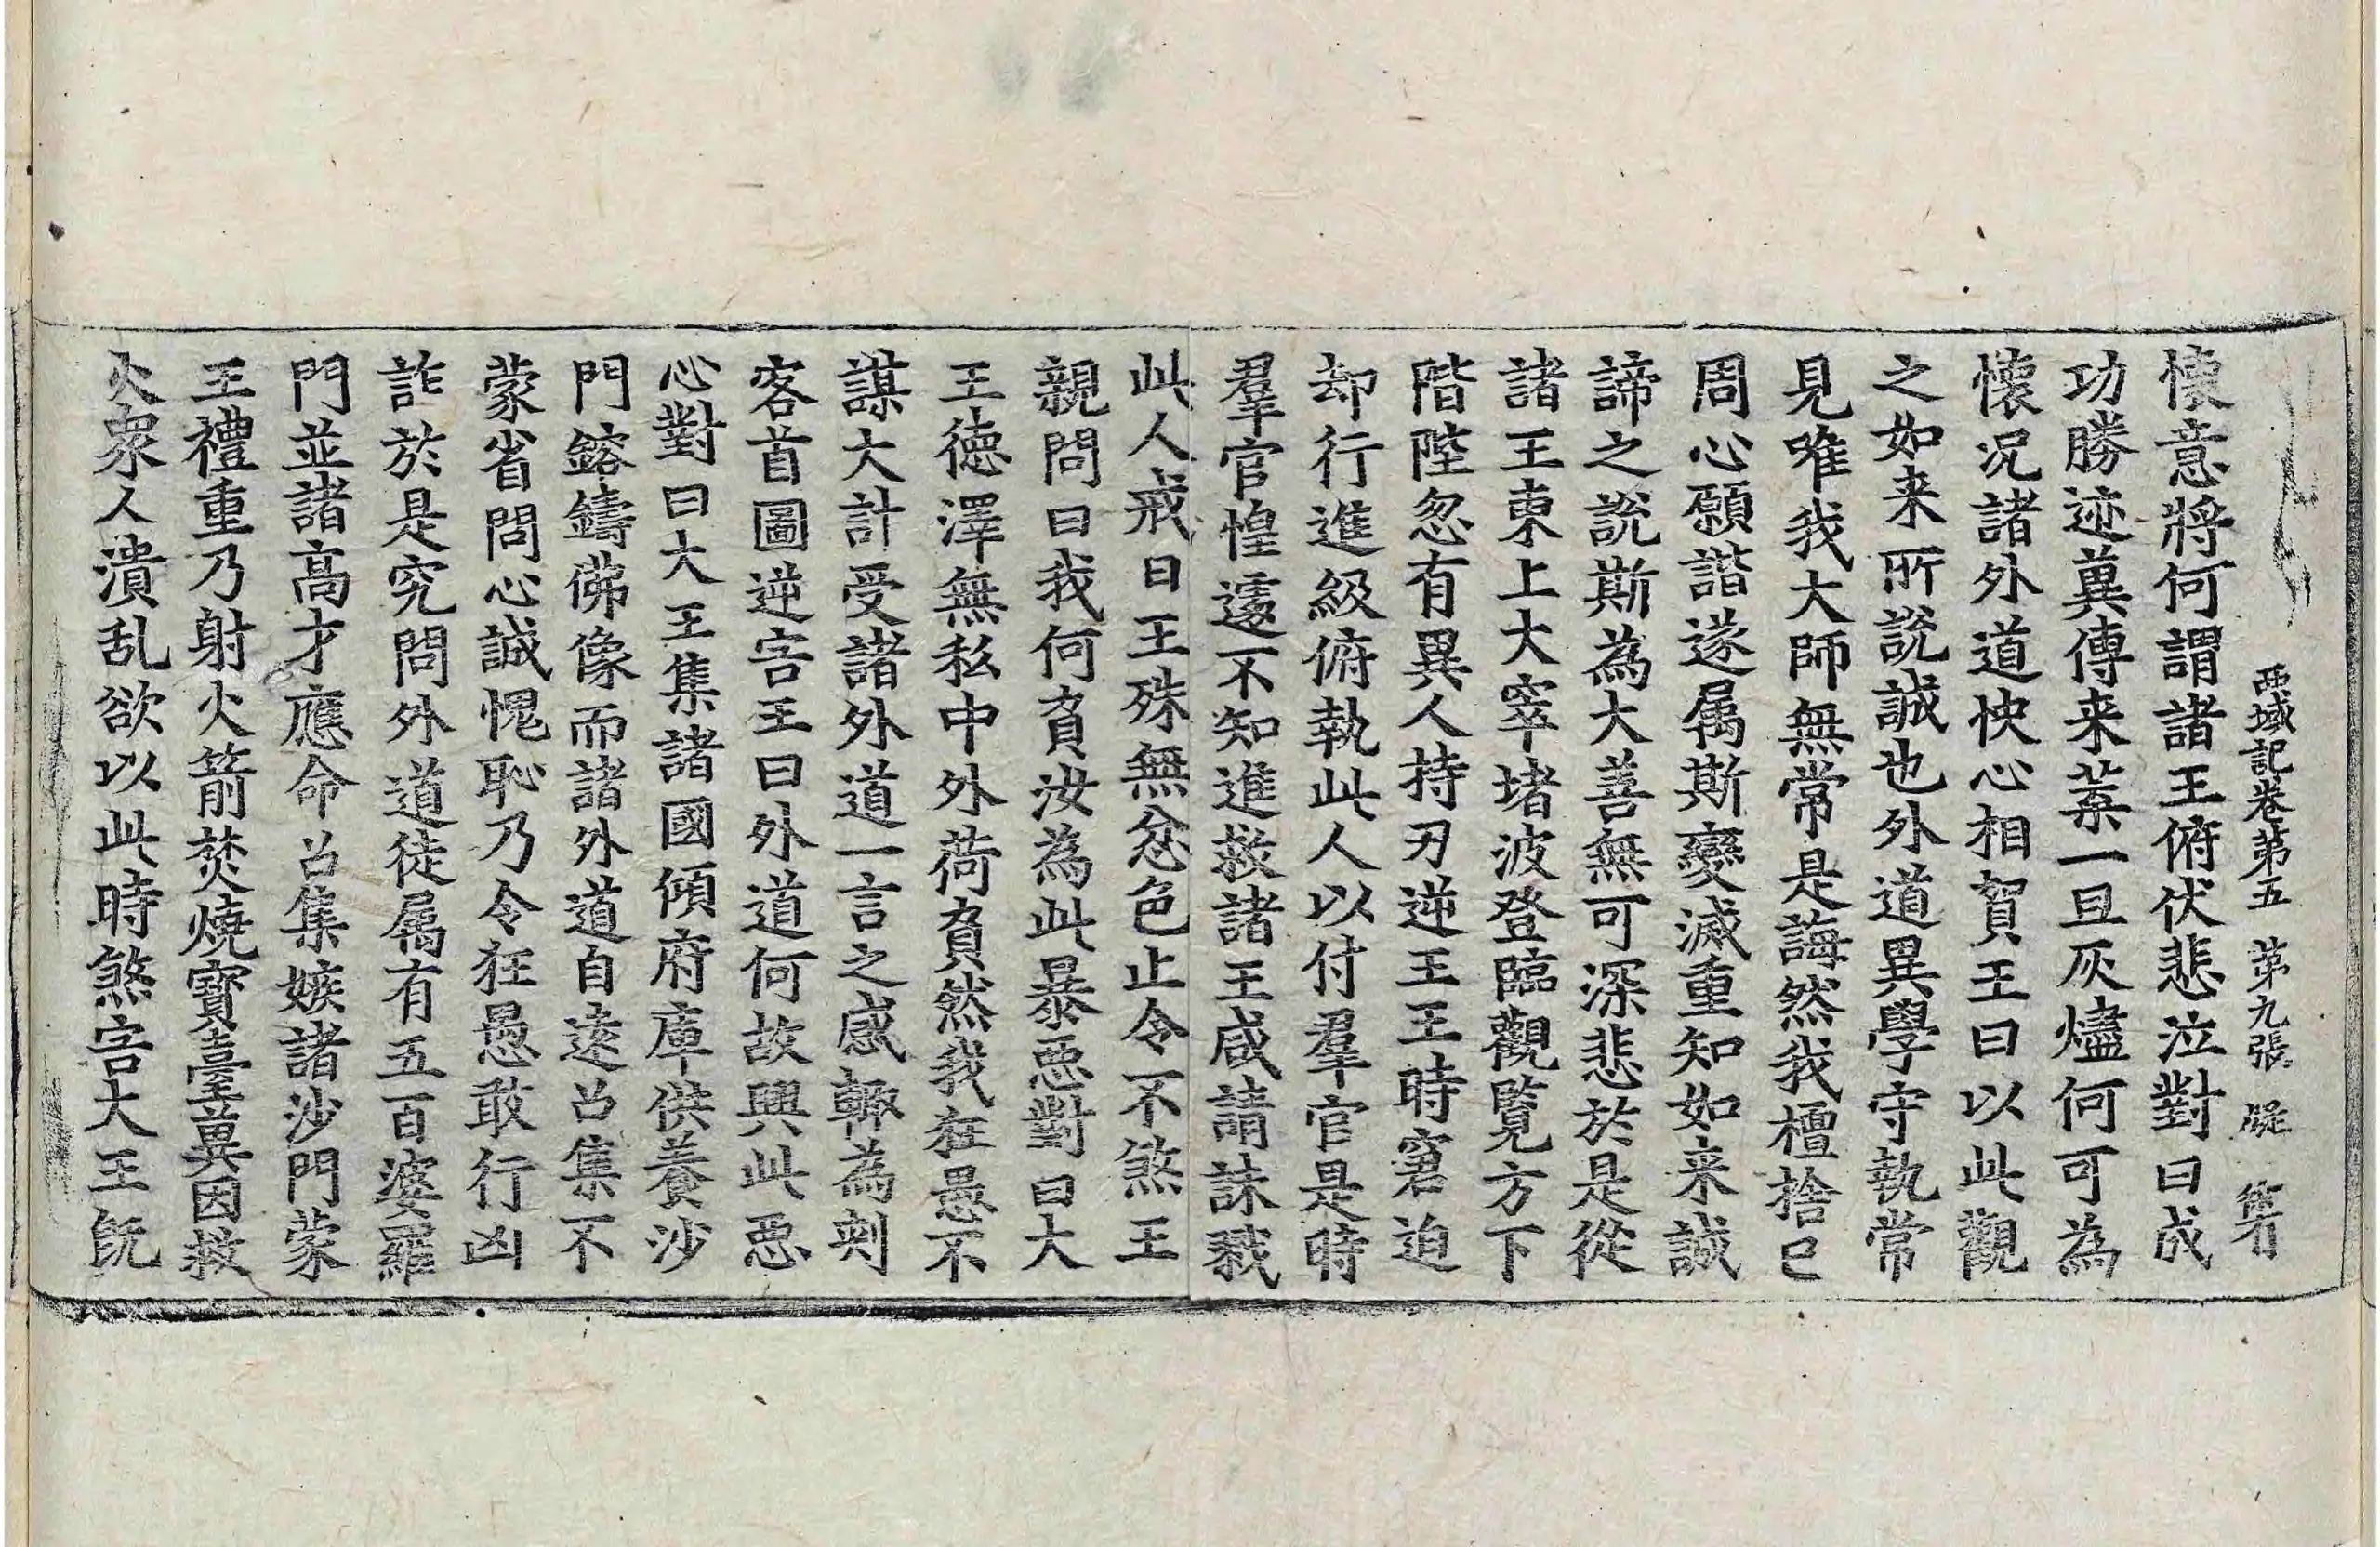 西域記卷第五　第九張　凝
懷意將何謂諸王俯伏悲泣對曰成
功勝迹冀傳来葉一旦灰燼何可為
懷况諸外道快心相賀王曰以此觀
之如来所說誠也外道異學守執常
見唯我大師無常是誨然我檀捨已
周心願諧遂属斯變滅重知如来誠
諦之說斯為大善無可深悲於是從
諸王東上大窣堵波登臨觀覧方下
階陛忽有異人持刃逆王王時窘迫
却行進級俯執此人以付羣官是時
羣官惶遽不知進救諸王咸請誅戮
此人戒日王殊無忿色止令不煞王
親問曰我何負汝為此暴惡對曰大
王德澤無私中外荷負然我狂愚不
謀大計受諸外道一言之惑輙為刺
客首圖逆害王曰外道何故興此惡
心對曰大王集諸國傾府庫供養沙
門鎔鑄佛像而諸外道自遠召集不
蒙省問心誠愧恥乃令狂愚敢行凶
詐於是究問外道徒属有五百婆羅
門並諸高才應命召集嫉諸沙門蒙
王禮重乃射火箭焚燒寶臺冀因救
火衆人潰乱欲以此時煞害大王旣